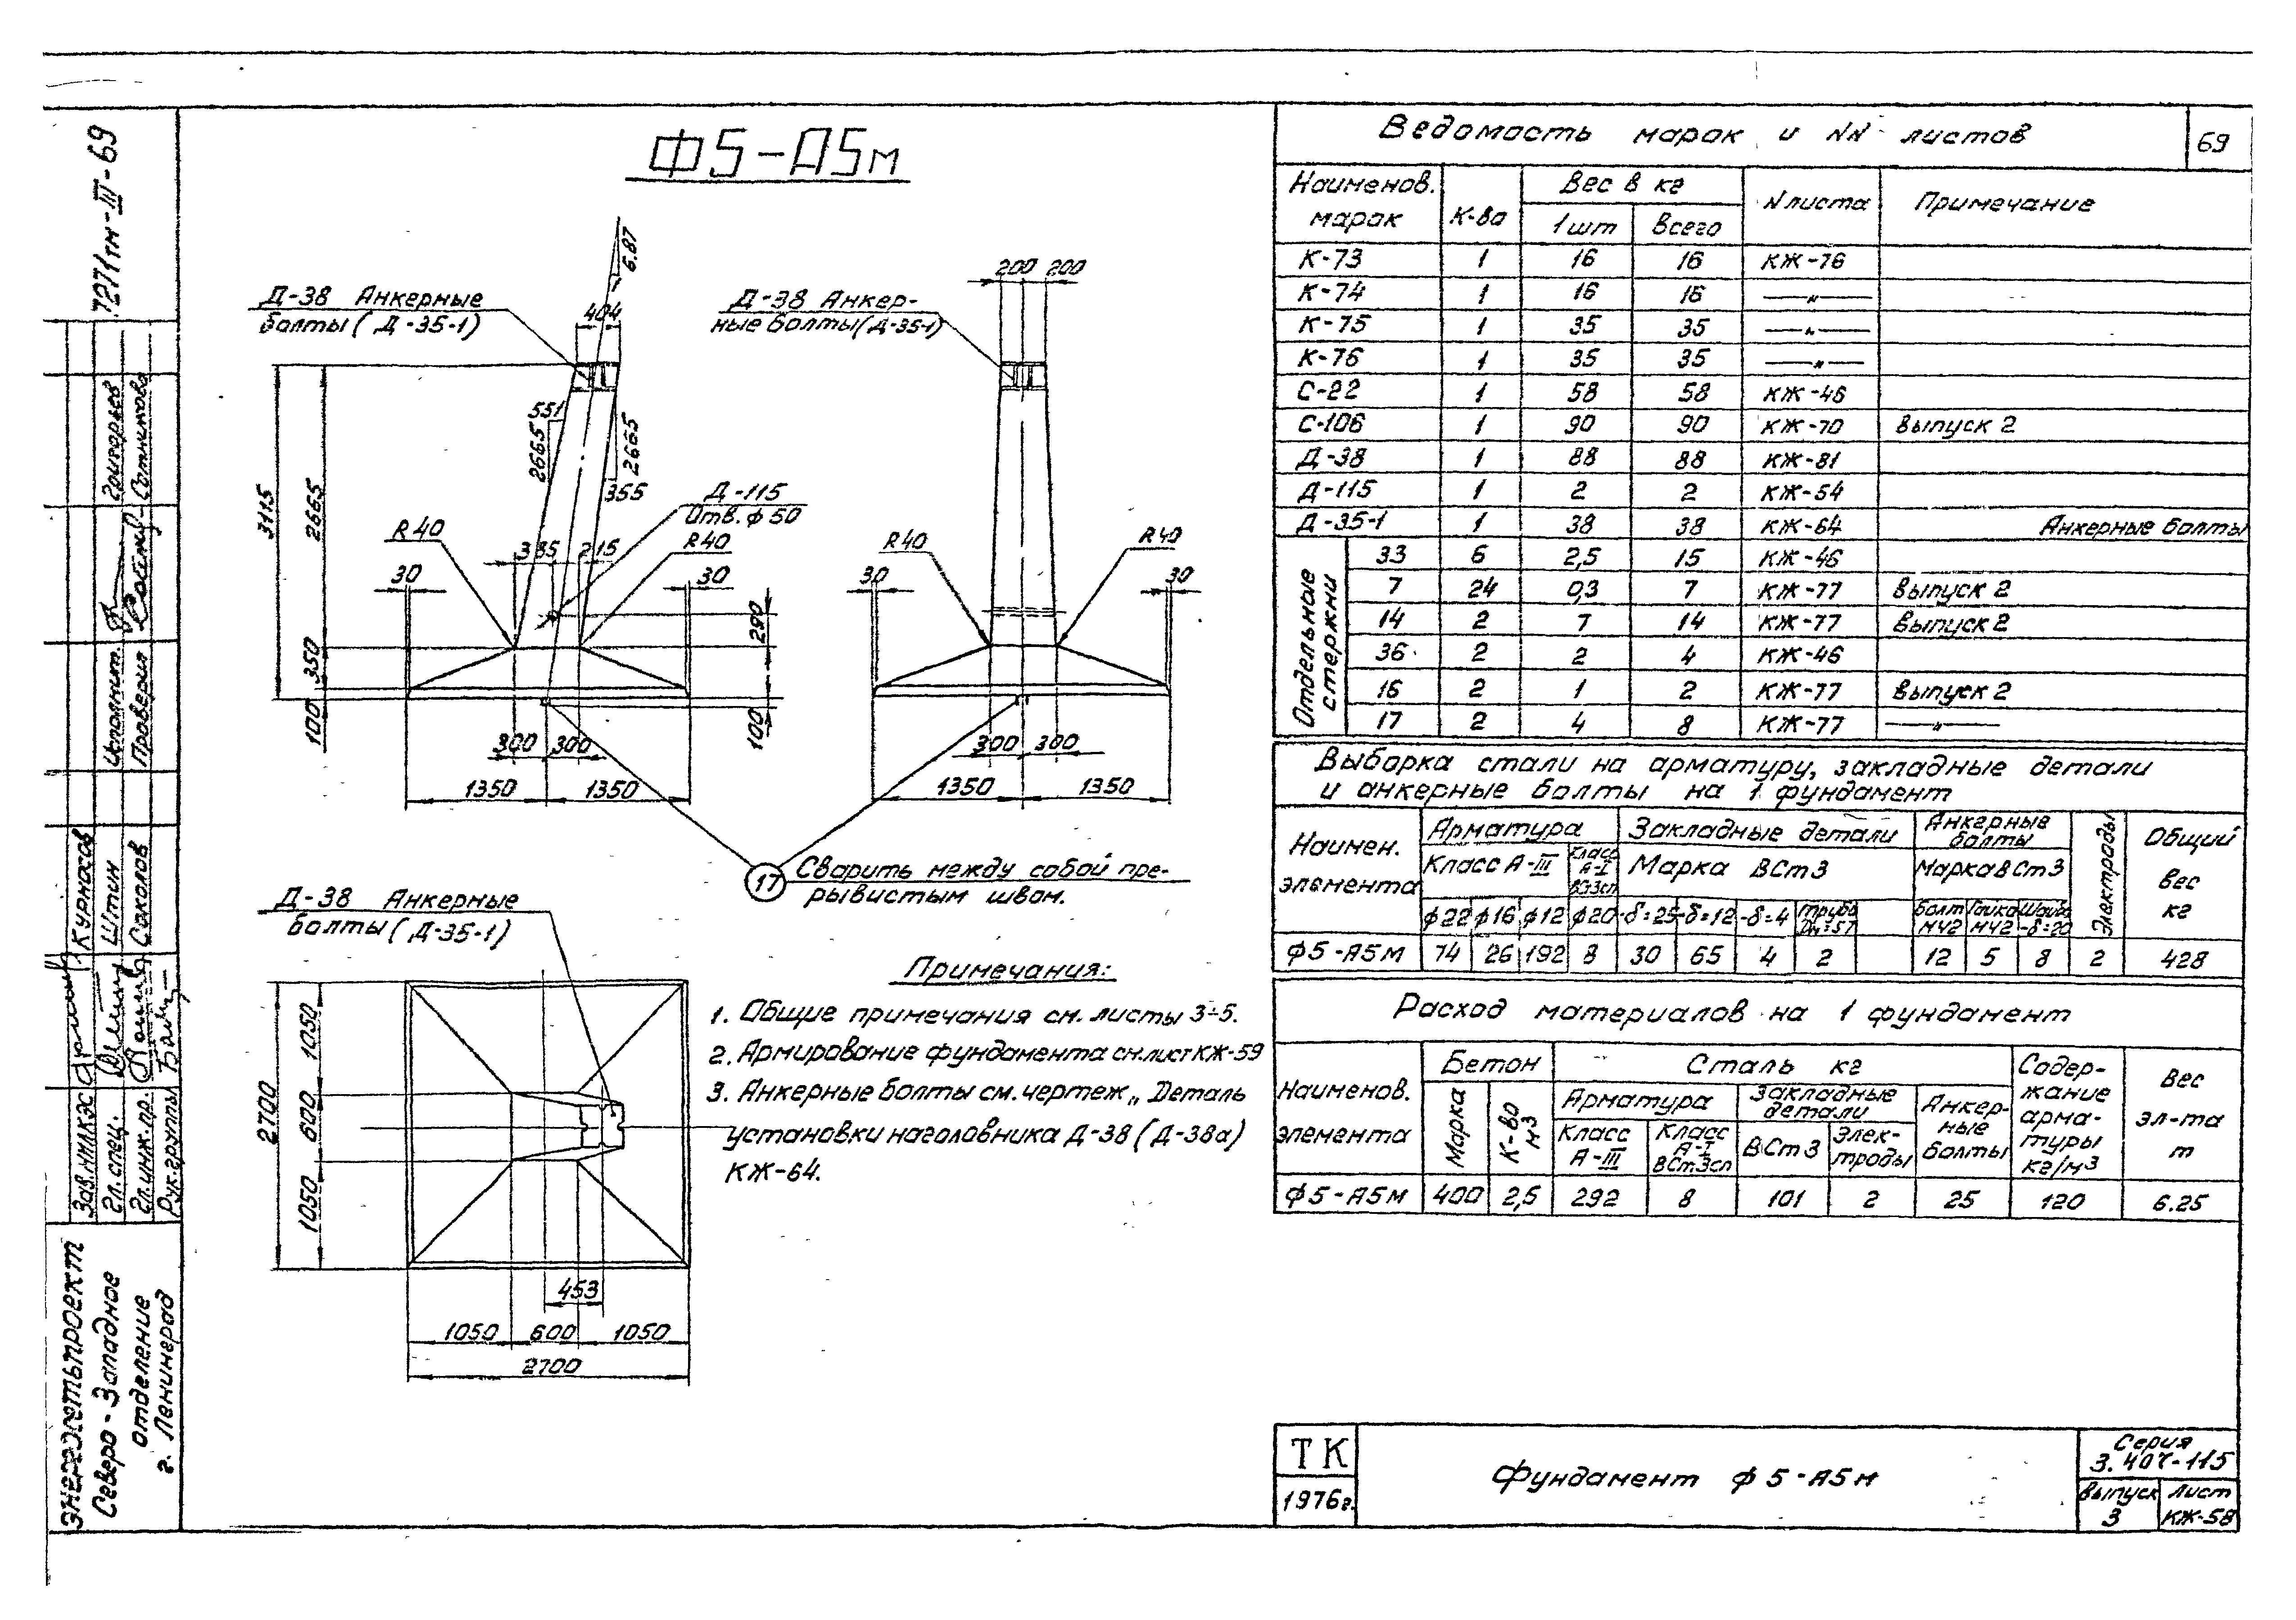 Ф5-А5м
7271тм-III-69
Д-38 Анкерные
болты (Д-35-1)
Д-38 Анкер-
ные болты (Д-35-1)
6.87
1
404
200 200
551
2665
2665
355
3115
2665
350
100
Д-115
Отв. ф 50
R40
385 215
R40
R40
R40
30
30
30
30
290
100
300 300
300 300
1350 1350
1350 1350
17 Сварить между собой пре-
рывистым швом.
Д-38 Анкерные
болты (Д-35-1)
2700
1050
600
1050
453
1050 600 1050
2700
Примечания:
1. Общие примечания см. листы 3÷5.
2. Армирование фундамента см. лист КЖ-59
3. Анкерные болты см. чертеж „Деталь
установки наголовника Д-38 (Д-38а)
КЖ-64.
Ведомость марок и NN листов
69
Наименов. марок К-во Вес в кг N листа Примечание
1 шт Всего
К-73 1 16 16 КЖ-76
К-74 1 16 16 —"—
К-75 1 35 35 —"—
К-76 1 35 35 —"—
С-22 1 58 58 КЖ-46
С-106 1 90 90 КЖ-70 Выпуск 2
Д-38 1 88 88 КЖ-81
Д-115 1 2 2 КЖ-54
Д-35-1 1 38 38 КЖ-64 Анкерные болты
Отдельные стержни
33 6 2,5 15 КЖ-46
7 24 0,3 7 КЖ-77 Выпуск 2
14 2 7 14 КЖ-77 Выпуск 2
36 2 2 4 КЖ-46
16 2 1 2 КЖ-77 Выпуск 2
17 2 4 8 КЖ-77 —"—
Выборка стали на арматуру, закладные детали
и анкерные болты на 1 фундамент
Наимен. элемента Арматура Закладные детали Анкерные болты Электроды Общий вес кг
Класс А-III Класс А-I ВСт3сп Марка ВСт3 Марка ВСт3
ф22 ф16 ф12 ф20 -δ=25 -δ=12 -δ=4 Труба Dн=57 Болт М42 Гайка М42 Шайба -δ=20
Ф5-А5м 74 26 192 8 30 65 4 2 12 5 8 2 428
Расход материалов на 1 фундамент
Наименов. элемента Бетон Сталь кг Содер-жание арма-туры кг/м3 Вес эл-та т
Марка К-во м3 Арматура Закладные детали Анкер-ные болты
Класс А-III Класс А-I ВСт3сп ВСт3 Элек-троды
Ф5-А5м 400 2,5 292 8 101 2 25 120 6.25
ТК
1976г.
Фундамент Ф5-А5м
Серия
3.407-115
Выпуск
3
Лист
КЖ-58
Исполнит. Григорьев
Проверил Сотникова
Зав. НИЛКЭС Курносов
Гл. спец. Штин
Гл. инж. пр. Соколов
Рук. группы
Энергосетьпроект
Северо-Западное
отделение
г. Ленинград